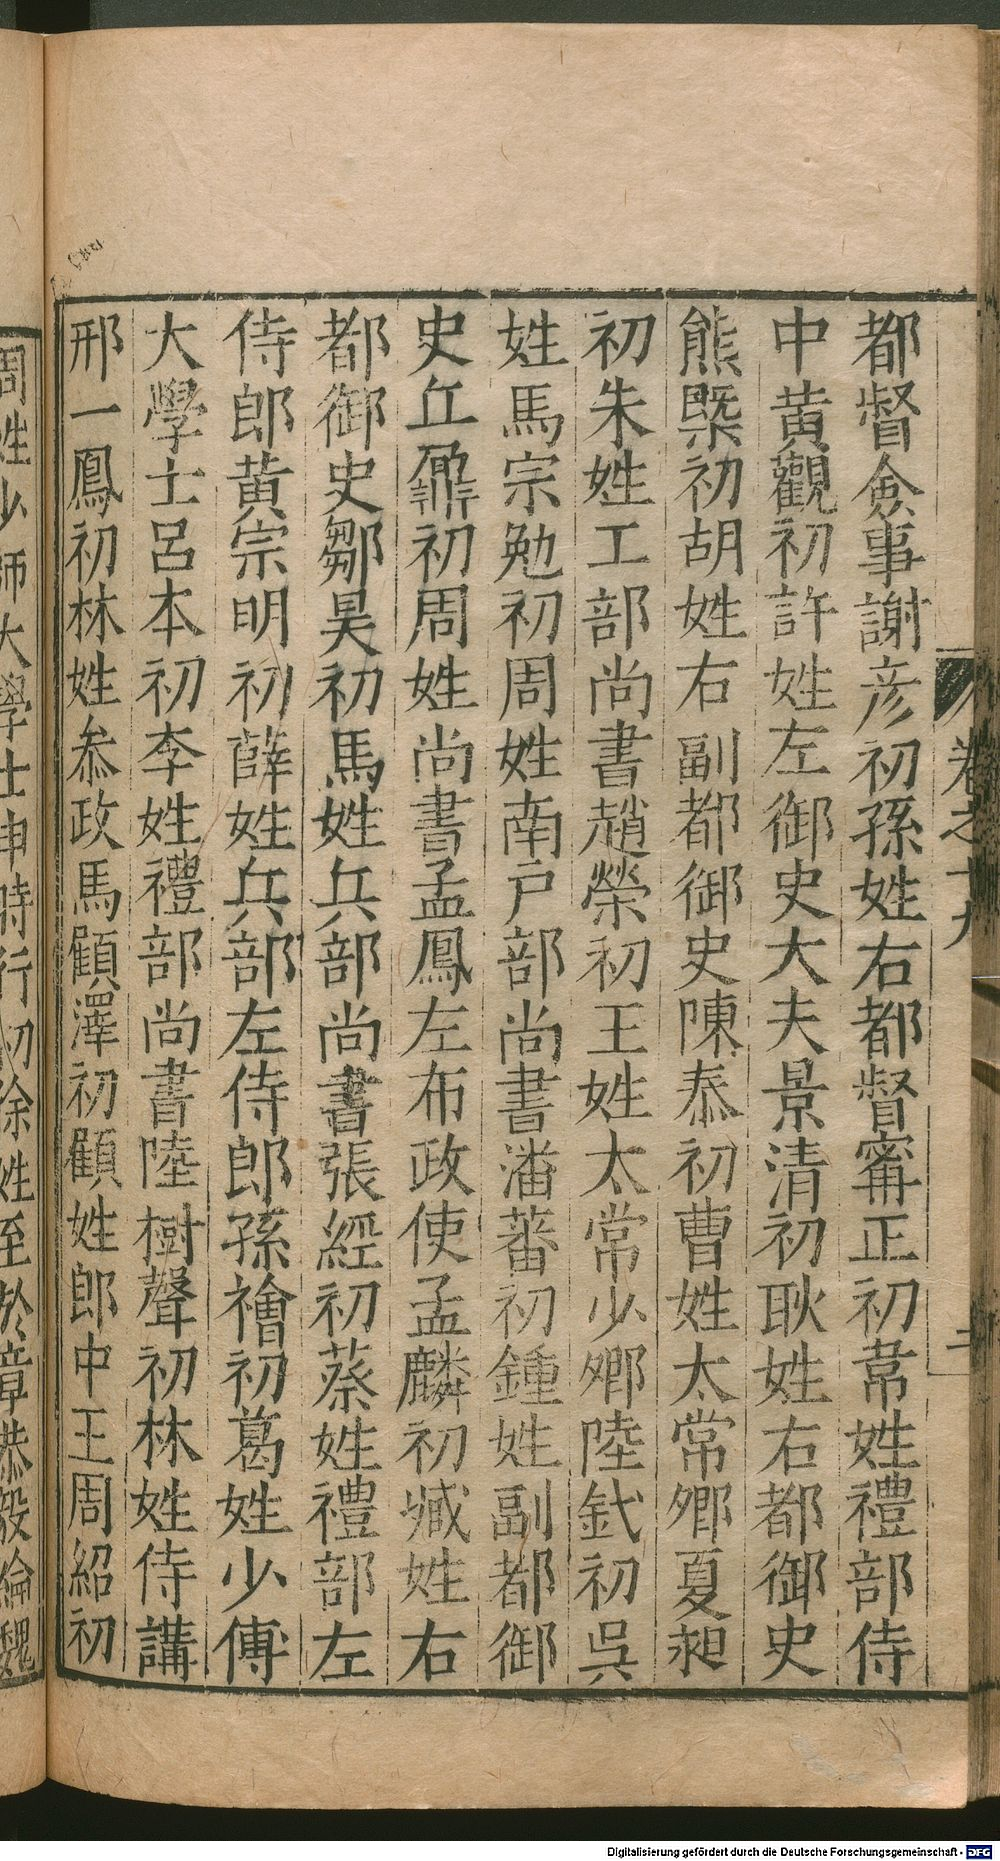 都督僉事謝彦初孫姓右都督甯正初韋姓禮部侍
中黄觀初許姓左御史大夫景清初耿姓右都御史
熊槩初胡姓右副都御史陳泰初曹姓太常郷夏昶
初朱姓工部尚書趙榮初王姓太常少郷陸釴初吳
姓馬宗勉初周姓南戸部尚書潘蕃初鍾姓副都御
史丘鼐初周姓尚書孟鳳左布政使孟麟初臧姓右
都御史鄒昊初馬姓兵部尚書張經初蔡姓禮部左
侍郎黄宗明初薛姓兵部左侍郎孫襘初葛姓少傅
大學士呂本初李姓禮部尚書陸樹聲初林姓侍講
邢一鳳初林姓叅政馬顧澤初顧姓郎中王周紹初
周姓少師大學士申時行初徐姓至於章恭毅綸魏
卷之十九
Digitalisierung gefördert durch die Deutsche Forschungsgemeinschaft - DFG